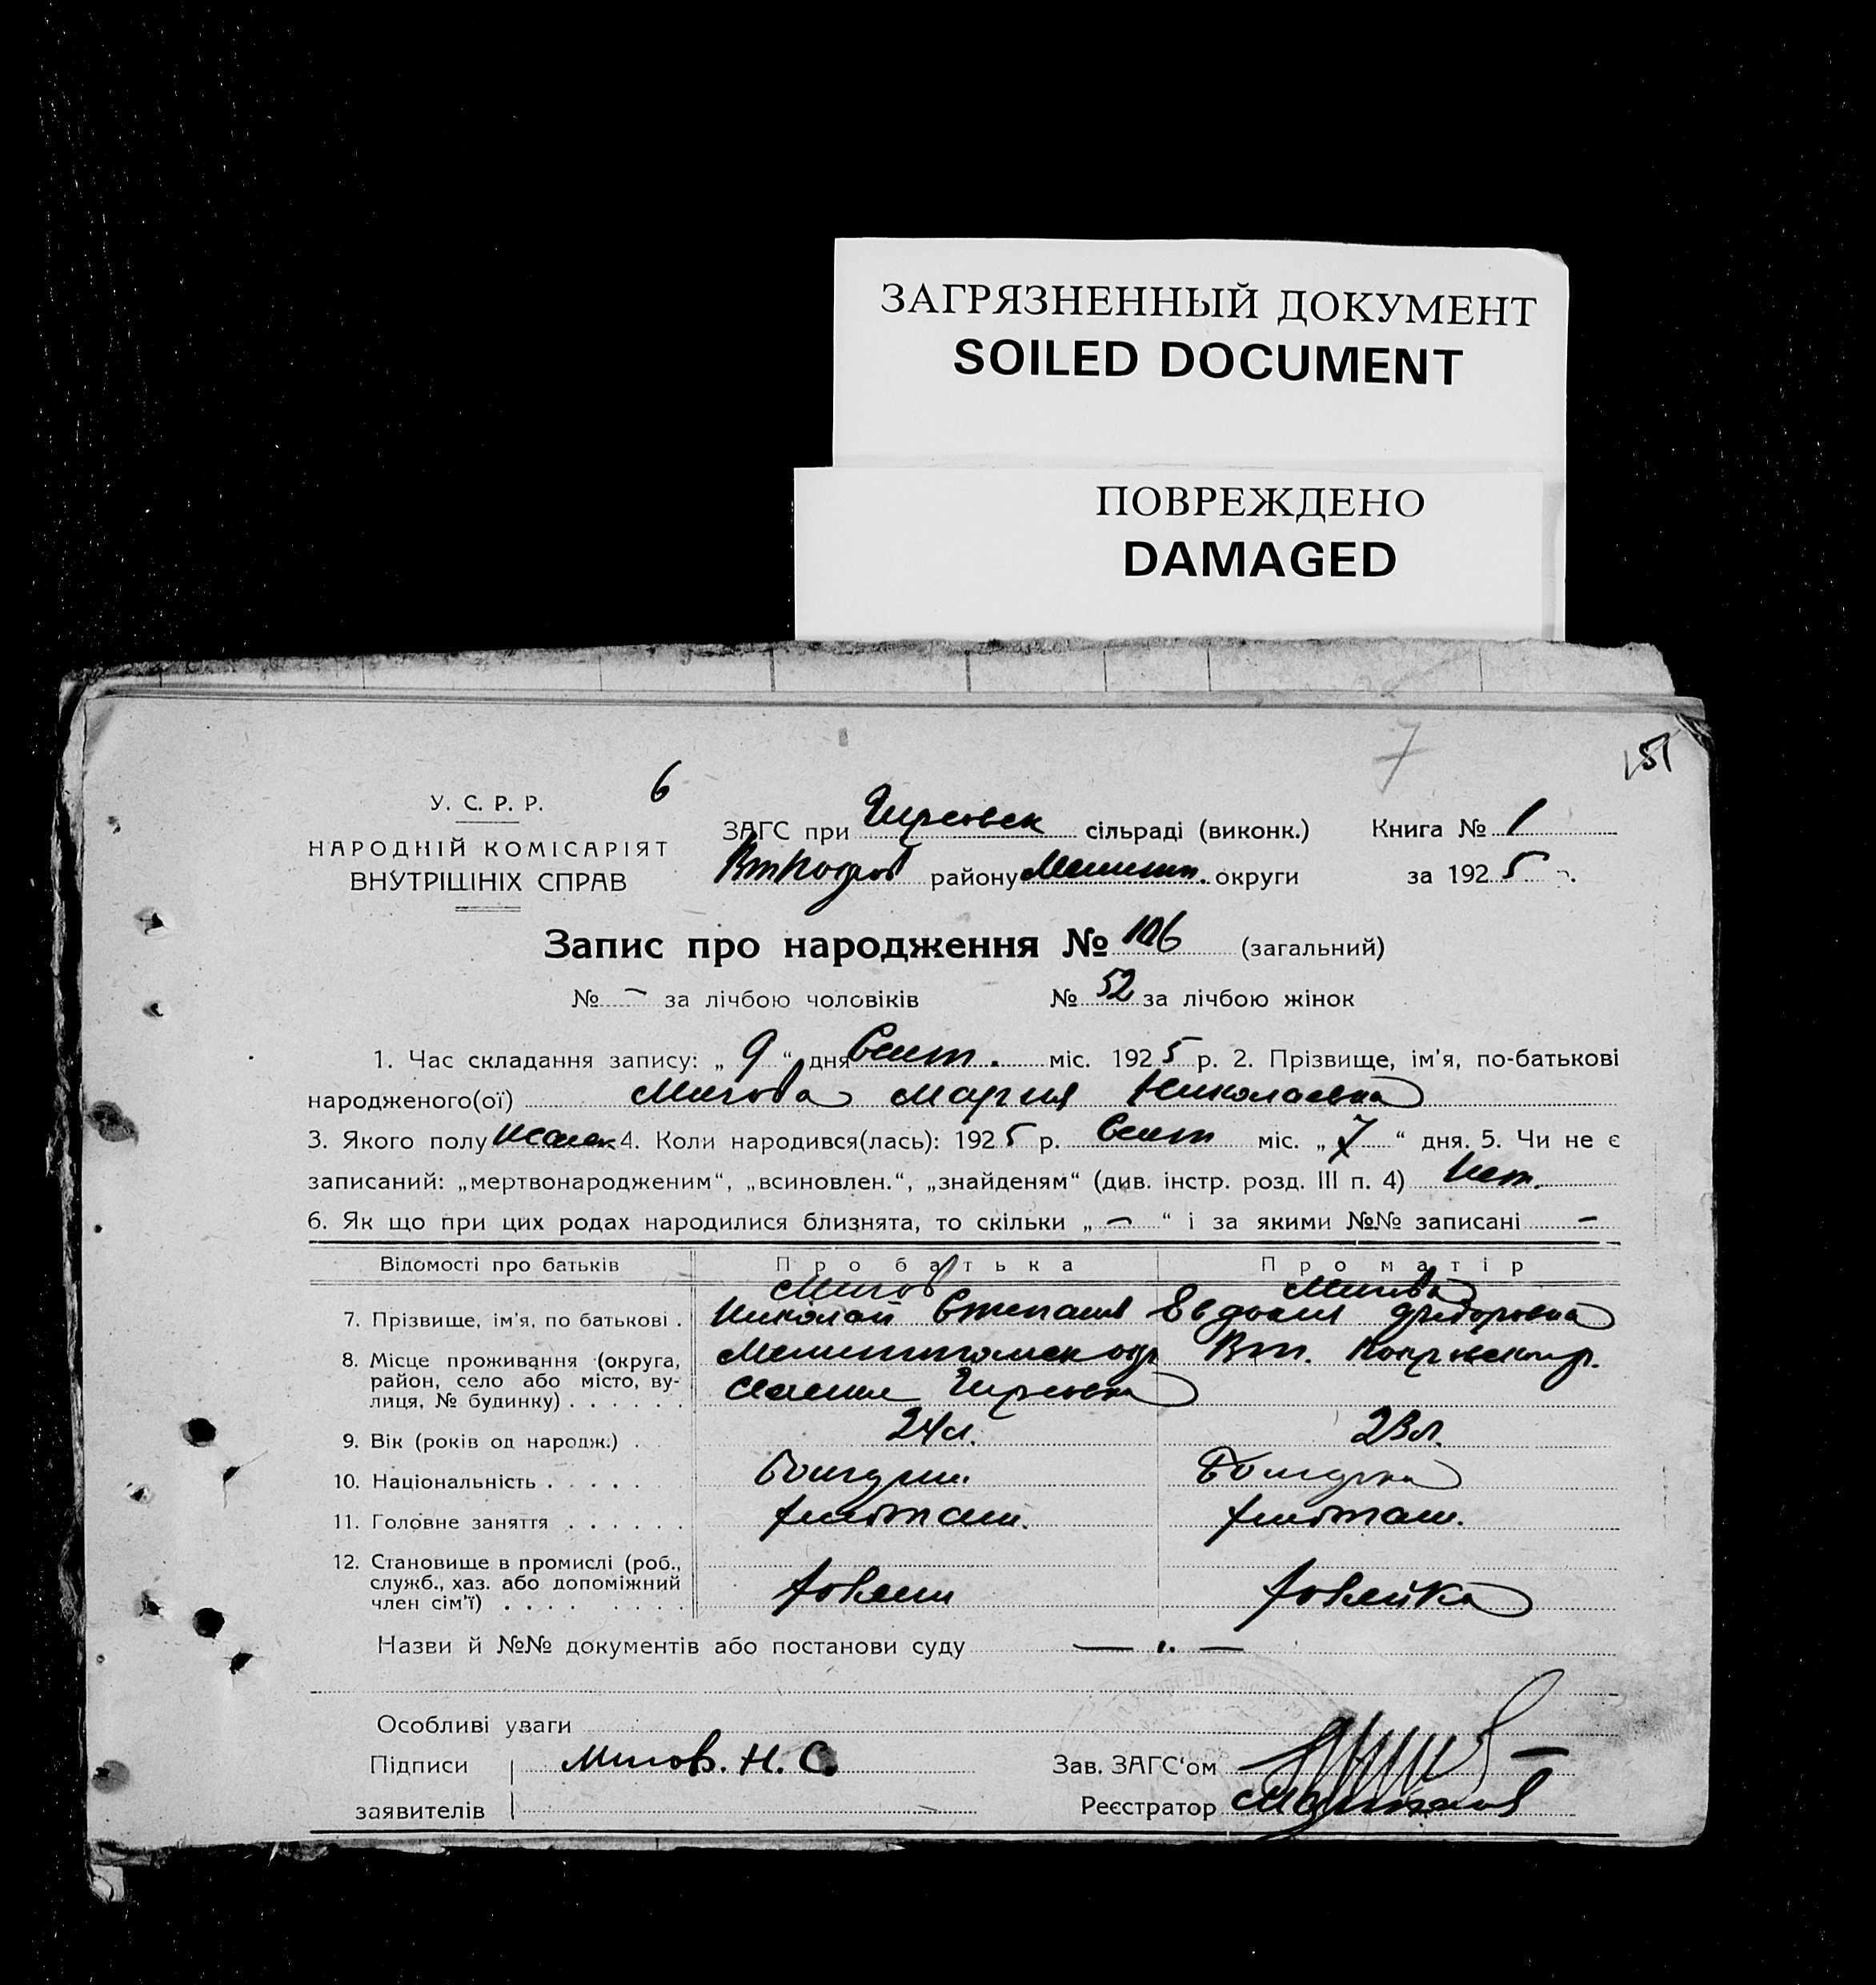 ЗАГРЯЗНЕННЫЙ ДОКУМЕНТ
SOILED DOCUMENT
ПОВРЕЖДЕНО
DAMAGED
7
151
6
У. С. Р. Р.
НАРОДНІЙ КОМІСАРІЯТ
ВНУТРІШНІХ СПРАВ
ЗАГС при Гирсовск сільраді (виконк.) Книга № 1
району Мелитп. округи за 1925 р.
Запис про народження № 106 (загальний)
№ – за лічбою чоловіків № 52 за лічбою жінок
1. Час складання запису: „9“ дня Сент. міс. 1925 р. 2. Прізвище, ім'я, по-батькові
народженого(ої) Мигова Мария Николаевна
3. Якого полу женск 4. Коли народився(лась): 1925 р. Сент міс. „7“ дня. 5. Чи не є
записаний: „мертвонародженим“, „всиновлен.“, „знайденям“ (див. інстр. розд. III п. 4) Нет.
6. Як що при цих родах народилися близнята, то скільки „–“ і за якими №№ записані –
Відомості про батьків Про батька Про матір
Мигов Мигова
7. Прізвище, ім'я, по батькові . Николай Степанов Евдокия Федоровна
8. Місце проживання (округа,
район, село або місто, ву-
лиця, № будинку) . . . . . .
Мелитопольск окр
селение Гирсовка
9. Вік (років од народж.) . 24 л. 23 л.
10. Національність . . . . . Болгарин. Болгарка
11. Головне заняття . . . . . . хлебопаш. хлебопаш.
12. Становище в промислі (роб.,
служб., хаз. або допоміжний
член сім'ї) . . . . . . . . .
хозяин хозяйка
Назви й №№ документів або постанови суду — „ —
Особливі уваги
Підписи Мигов. Н. С.
заявителів
Зав. ЗАГС'ом
Реєстратор